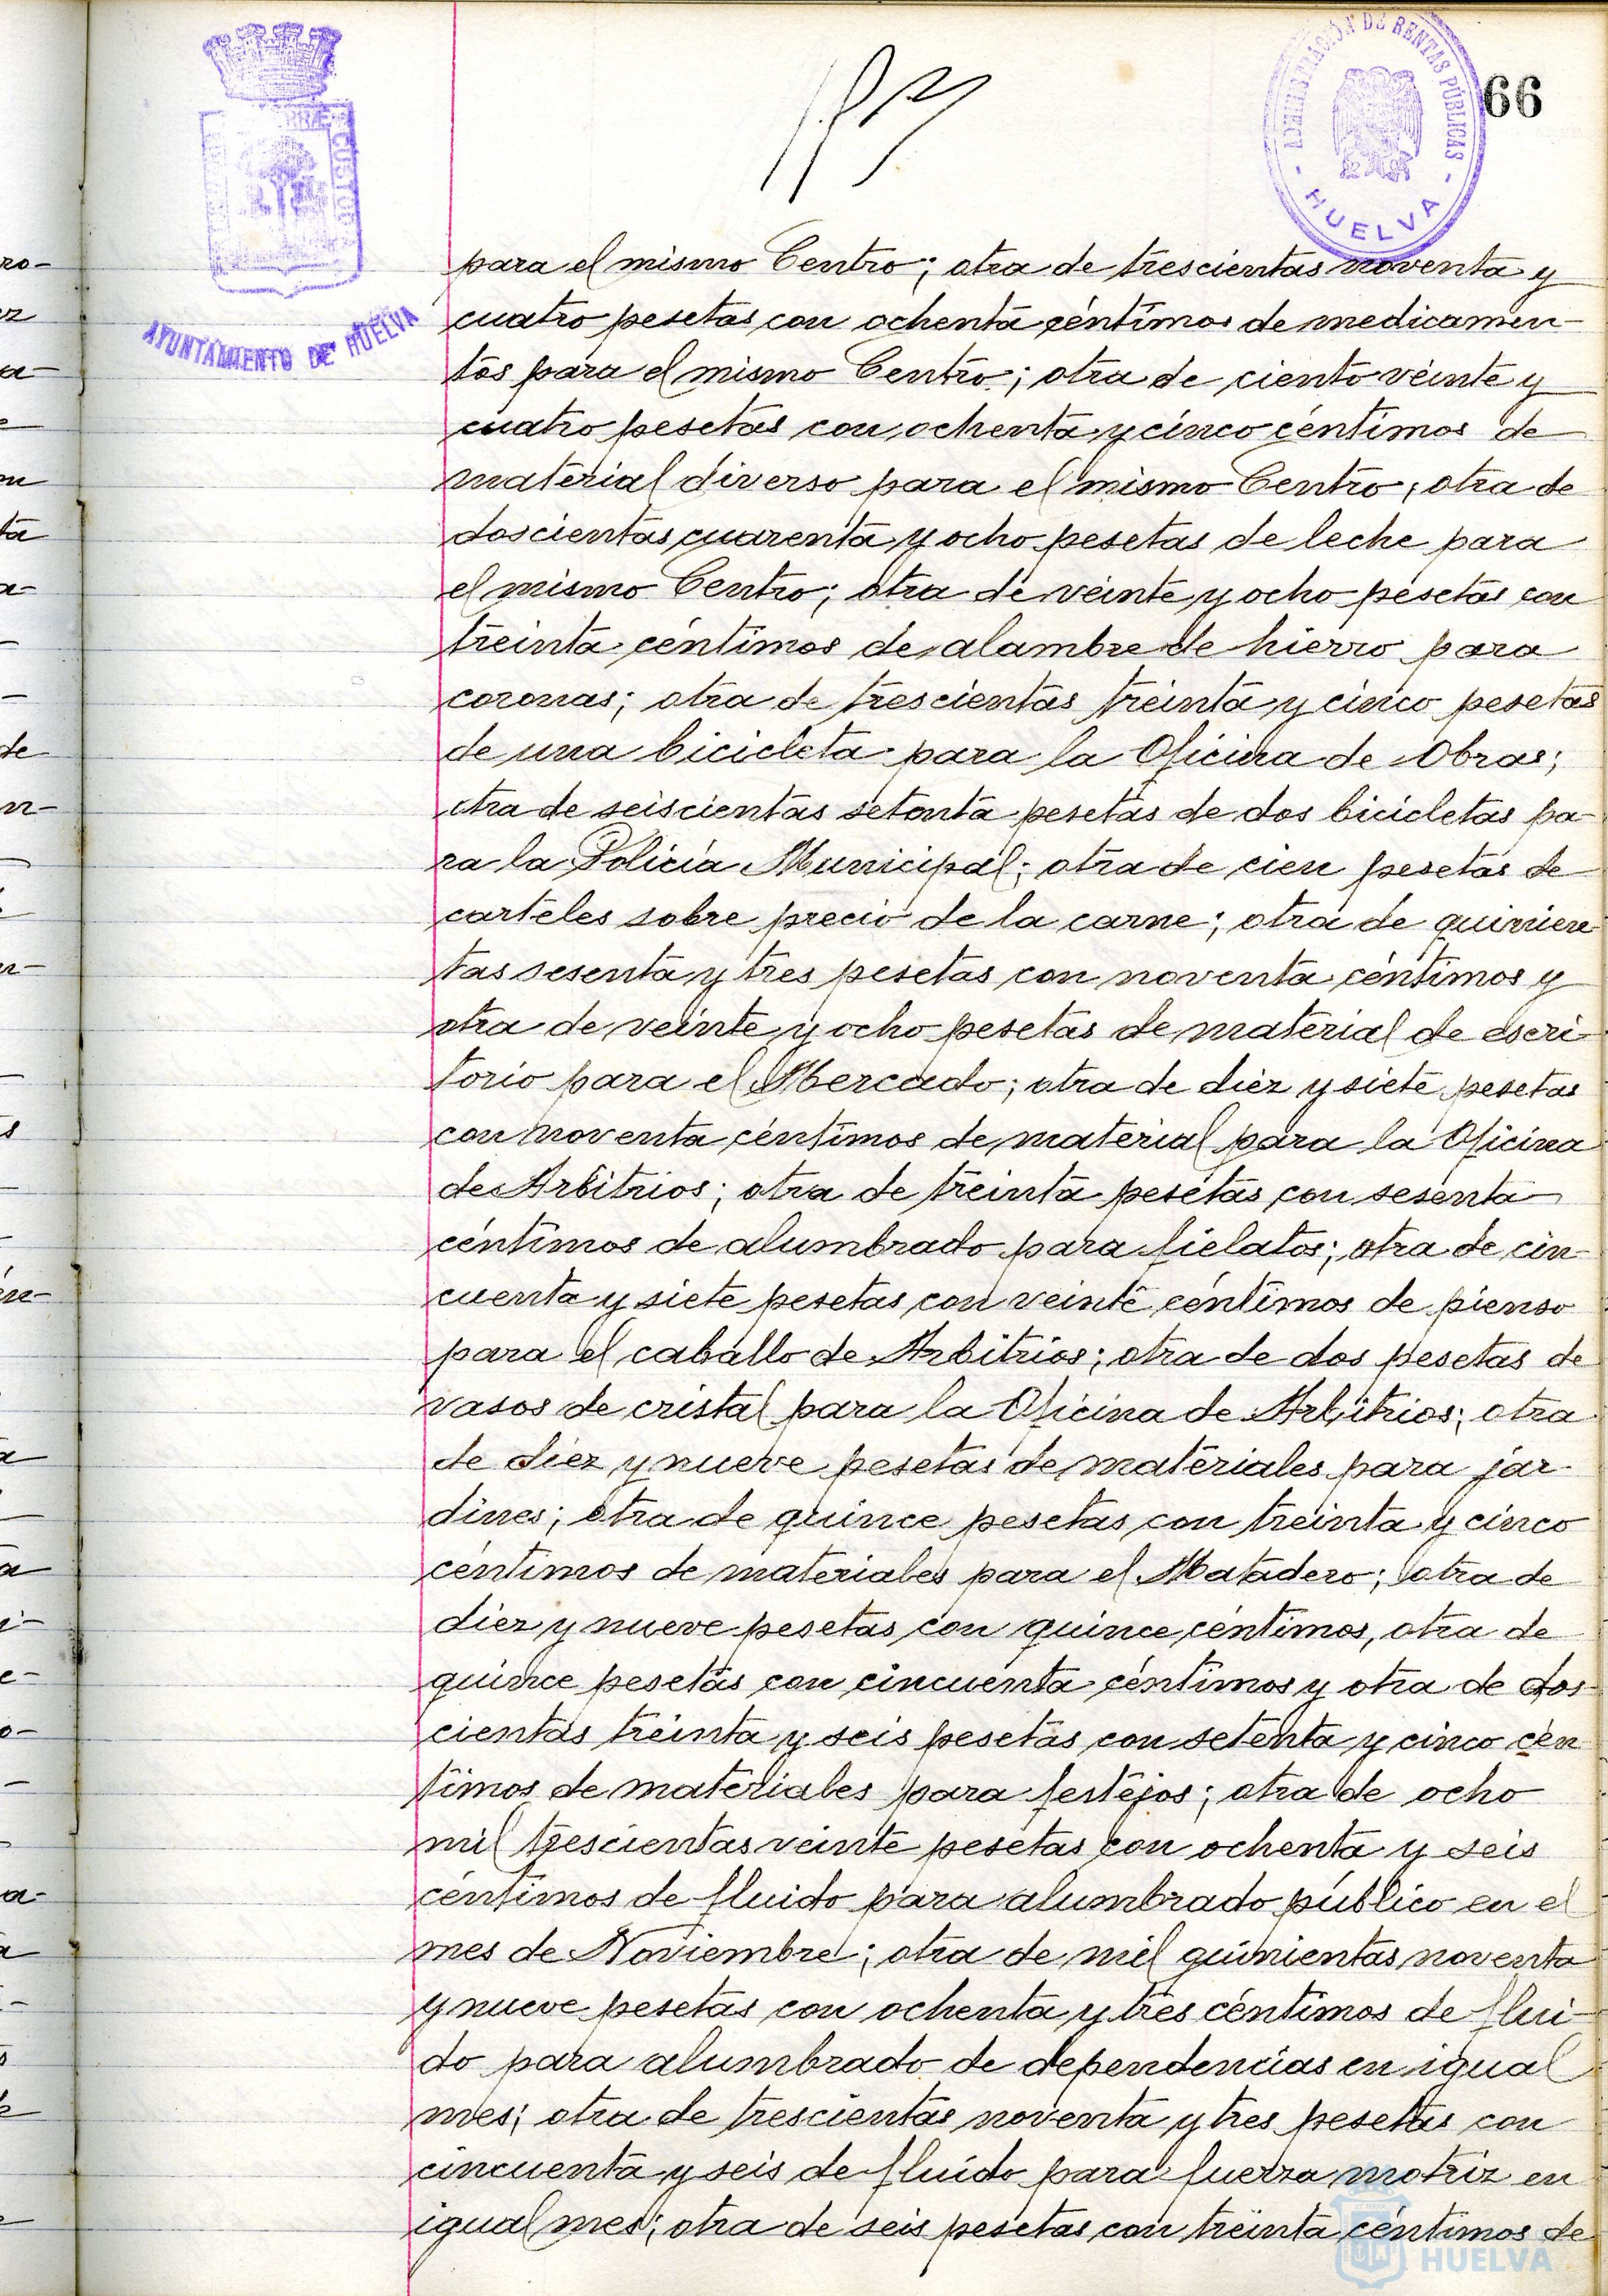 66
ADMINISTRACIÓN DE RENTAS PÚBLICAS
- HUELVA -
CUSTOD
AYUNTAMIENTO DE HUELVA
para el mismo Centro; otra de trescientas noventa y
cuatro pesetas con ochenta céntimos de medicamen-
tos para el mismo Centro; otra de ciento veinte y
cuatro pesetas con ochenta y cinco céntimos de
material diverso para el mismo Centro; otra de
doscientas cuarenta y ocho pesetas de leche para
el mismo Centro; otra de veinte y ocho pesetas con
treinta céntimos de alambre de hierro para
coronas; otra de trescientas treinta y cinco pesetas
de una bicicleta para la Oficina de Obras;
otra de seiscientas setenta pesetas de dos bicicletas pa-
ra la Policía Municipal; otra de cien pesetas de
carteles sobre precio de la carne; otra de quinien-
tas sesenta y tres pesetas con noventa céntimos y
otra de veinte y ocho pesetas de material de escri-
torio para el Mercado; otra de diez y siete pesetas
con noventa céntimos de material para la Oficina
de Arbitrios; otra de treinta pesetas con sesenta
céntimos de alumbrado para fielatos; otra de cin-
cuenta y siete pesetas con veinte céntimos de pienso
para el caballo de Arbitrios; otra de dos pesetas de
vasos de cristal para la Oficina de Arbitrios; otra
de diez y nueve pesetas de materiales para jar-
dines; otra de quince pesetas con treinta y cinco
céntimos de materiales para el Matadero; otra de
diez y nueve pesetas con quince céntimos, otra de
quince pesetas con cincuenta céntimos y otra de dos-
cientas treinta y seis pesetas con setenta y cinco cén
timos de materiales para festejos; otra de ocho
mil trescientas veinte pesetas con ochenta y seis
céntimos de fluido para alumbrado público en el
mes de Noviembre; otra de mil quinientas noventa
y nueve pesetas con ochenta y tres céntimos de flui-
do para alumbrado de dependencias en igual
mes; otra de trescientas noventa y tres pesetas con
cincuenta y seis de fluido para fuerza motriz en
igual mes; otra de seis pesetas con treinta céntimos de
HUELVA